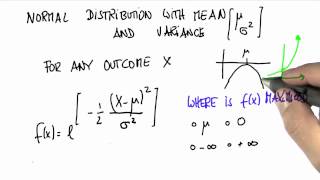 NORMAL DISTRIBUTION WITH MEAN [μ
AND VARIANCE σ²]
FOR ANY OUTCOME X
μ
f(x) = e^[-1/2 (x-μ)²/σ²]
WHERE IS f(x)
○ μ ○ 0
○ -∞ ○ +∞